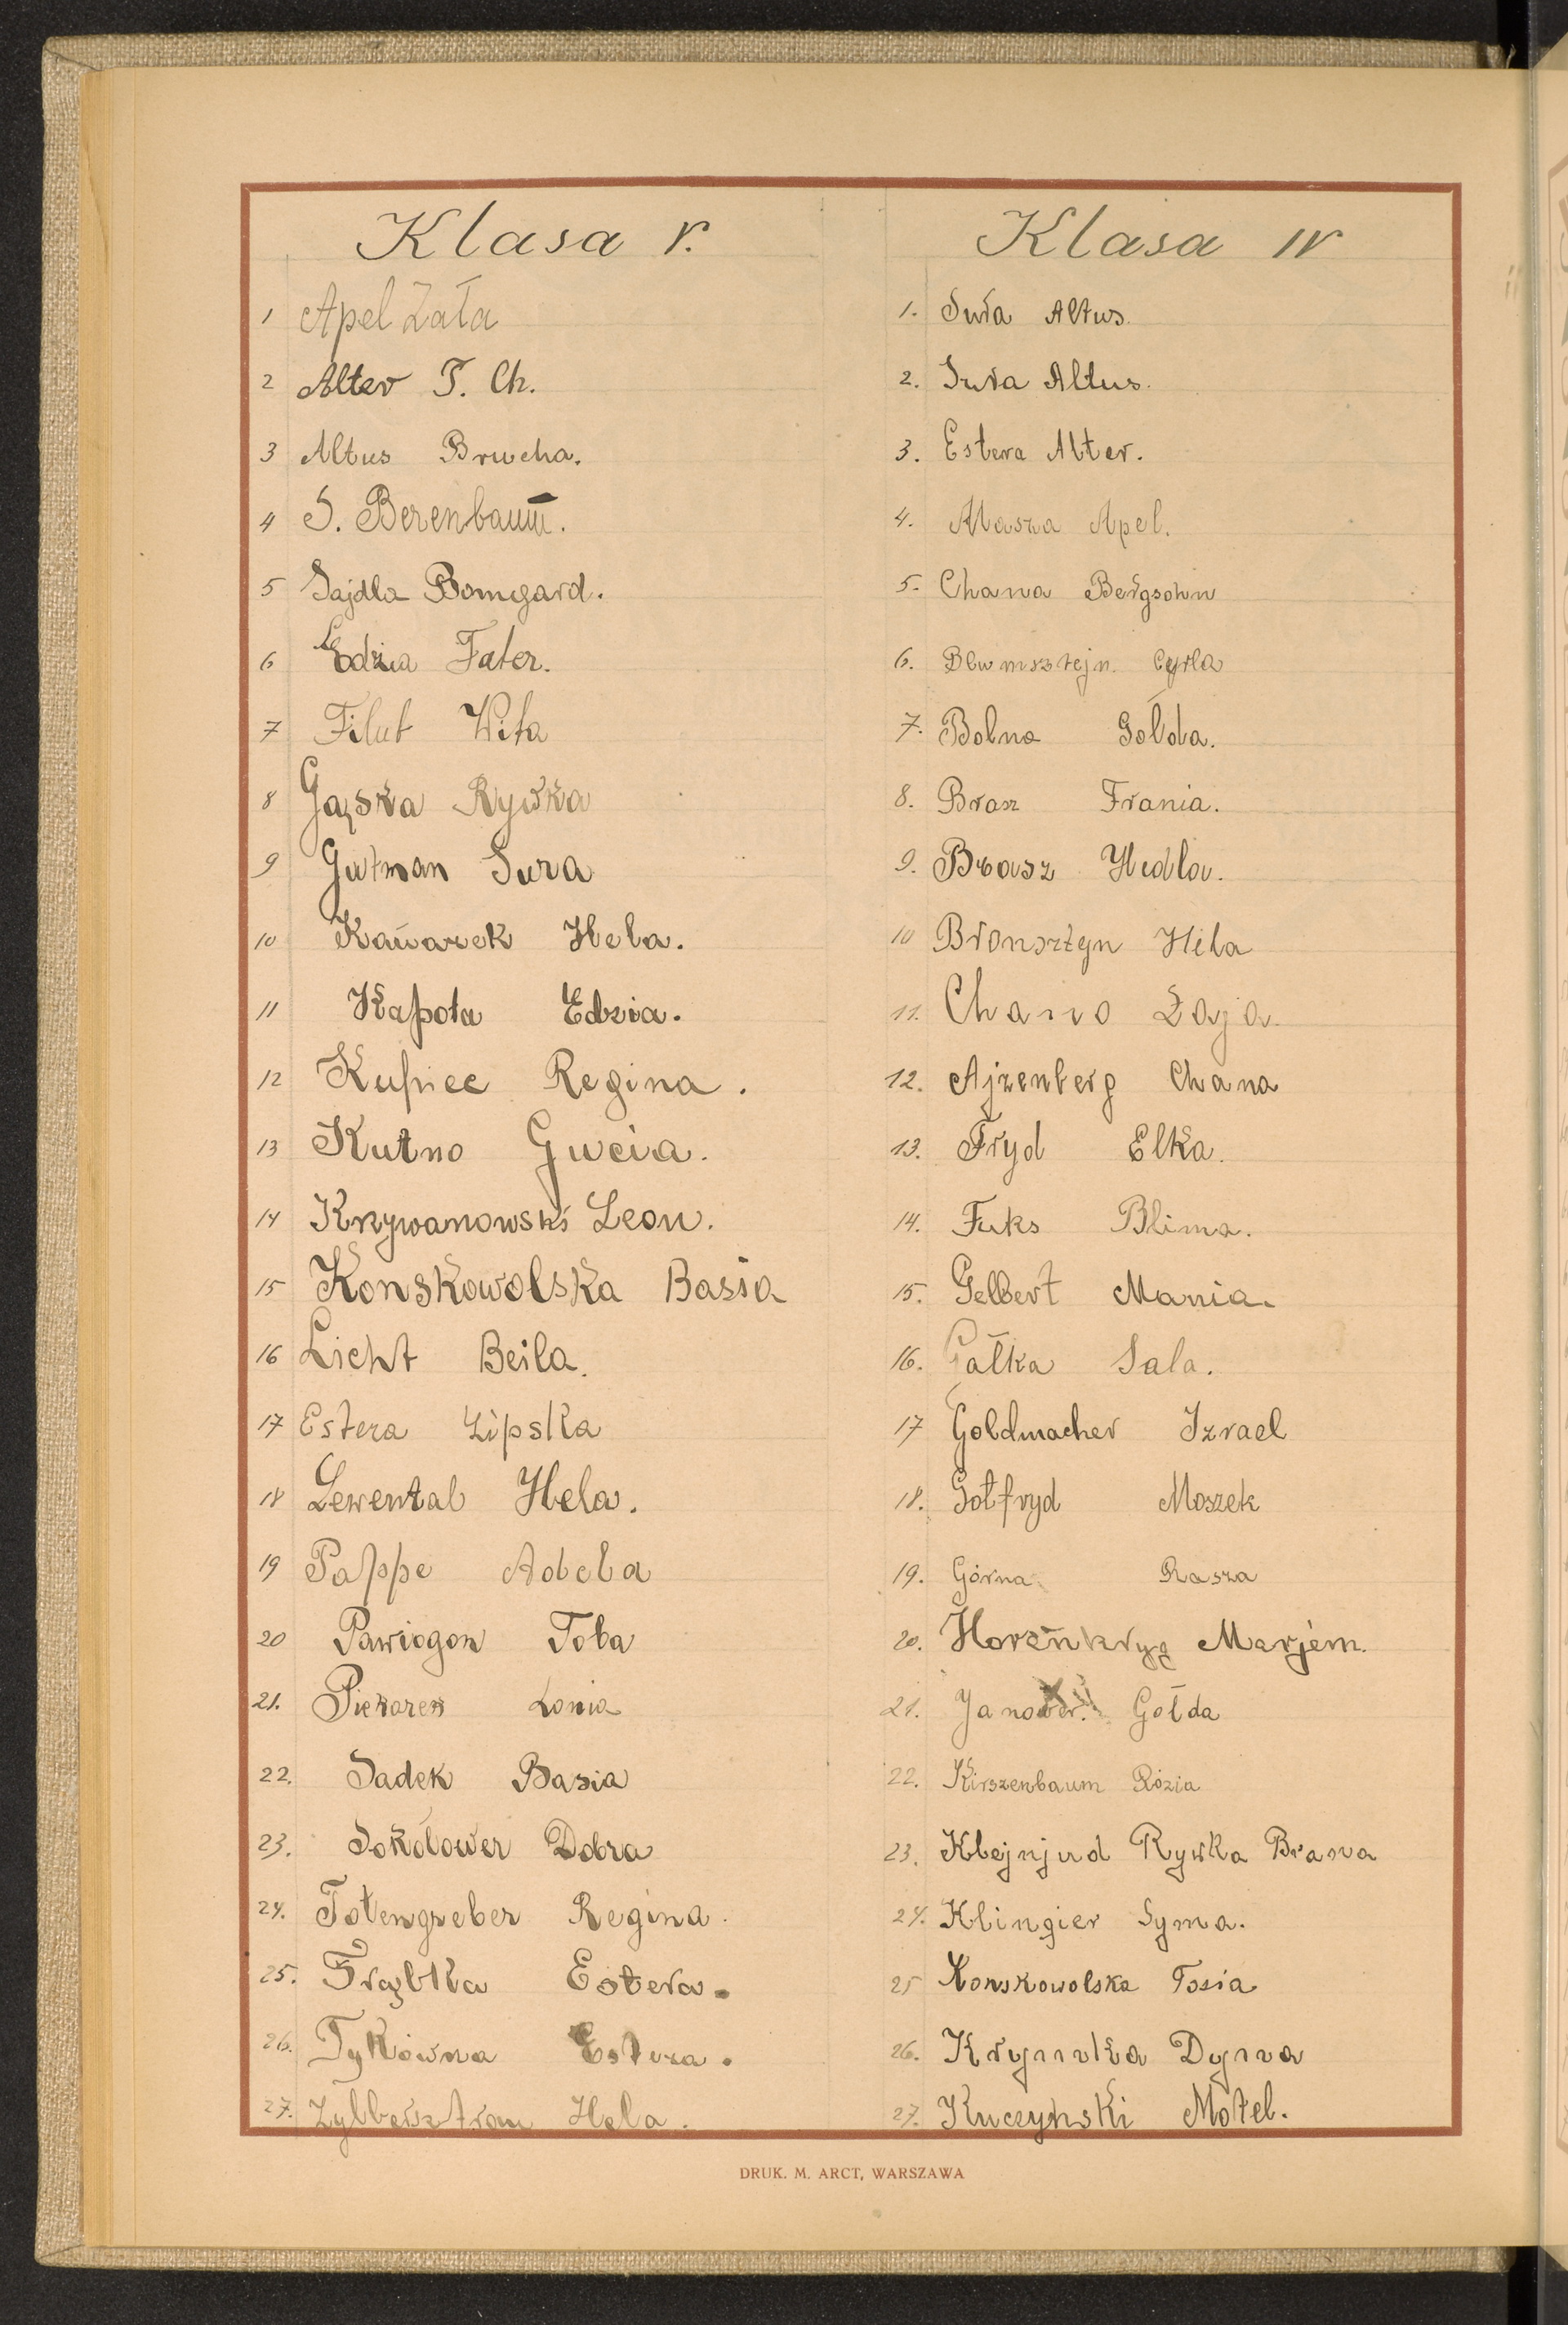 Klasa V.
1 Apel Zała
2 Alter T. Ch.
3 Altus Brucha.
4 S. Berenbaum.
5 Sajdla Bomgard.
6 Edzia Fater.
7 Filut Wita
8 Gąska Rywka
9 Gutman Sura
10 Kawarek Hela.
11 Kapota Edzia.
12 Kupiec Regina.
13 Kutno Gucia.
14 Krzywanowski Leon.
15 Konskowolska Basia
16 Licht Beila.
17 Estera Lipska
18 Lewental Hela.
19 Pappe Adela
20 Pawiogon Toba
21. Piekarek Lonia
22. Sadek Basia
23. Sokołower Dobra
24. Totengreber Regina.
25. Trąbka Estera.
26. Tykówna Estera.
27. Zylbersztrom Hela.
Klasa IV
1. Sura Altus.
2. Sura Altus.
3. Estera Alter.
4. Masza Apel.
5. Chana Bergsohn
6. Blumsztejn. Cyrla
7. Bolno Gołda.
8. Brasz Frania.
9. Brasz Hudla.
10 Bronsztyn Hela
11. Chano Łaja.
12. Ajzenberg Chana
13. Fryd Elka.
14. Fuks Blima.
15. Gelbert Mania.
16. Gałka Sala.
17 Goldmacher Izrael
18. Gotfryd Moszek
19. Górna Rasza
20. Marjem.
21. Janower. Gołda
22. Kirszenbaum Rózia
23. Klejnjud Rywka Brana
24. Klingier Syma.
25 Konskowolska Tosia
26. Krymka Dyna
27. Kuczyński Motel.
DRUK. M. ARCT, WARSZAWA